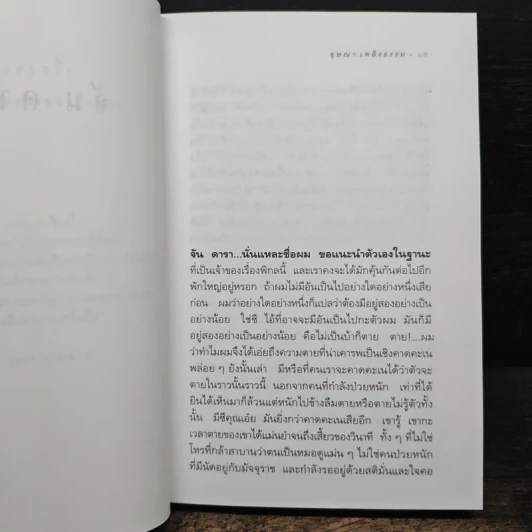 จัน ดารา...นั่นแหละชื่อผม ขอแนะนำตัวเองในฐานะ
ที่เป็นเจ้าของเรื่องพิกลนี้ และเราคงจะได้มักคุ้นกันต่อไปอีก
พักใหญ่อยู่หรอก ถ้าผมไม่มีอันเป็นไปอย่างใดอย่างหนึ่งเสีย
ก่อน ผมว่าอย่างใดอย่างหนึ่งก็แปลว่าต้องมีอยู่สองอย่างเป็น
อย่างน้อย ใช่ซี ไอ้ที่อาจจะมีอันเป็นไปกะตัวผม มันก็มี
อยู่สองอย่างเป็นอย่างน้อย คือไม่เป็นบ้าก็ตาย ตาย!...ผม
ว่าทำไมผมจึงได้เอ่ยถึงความตายที่น่าเคารพเป็นเชิงคาดคะเน
พล่อย ๆ ยังงั้นเล่า มีหรือที่คนเราจะคาดคะเนได้ว่าตัวจะ
ตายในราวนั้นราวนี้ นอกจากคนที่กำลังป่วยหนัก เท่าที่ได้
ยินได้เห็นมาก็ล้วนแต่หนักไปข้างลืมตายหรือตายไม่รู้ตัวทั้ง
นั้น มีซีคุณเอ๋ย มันยิ่งกว่าคาดคะเนเสียอีก เขารู้ เขากะ
เวลาตายของเขาได้แม่นยำจนถึงเสี้ยวของวินาที ทั้ง ๆ ที่ไม่ใช่
โหรที่กล้าสาบานว่าตนเป็นหมอดูแม่น ๆ ไม่ใช่คนป่วยหนัก
ที่มีนัดอยู่กับมัจจุราช และกำลังรออยู่ด้วยสติมั่นและใจคอ